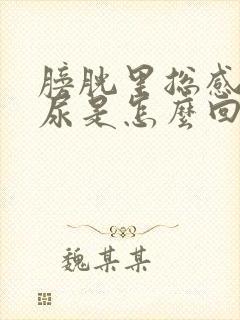 膀胱里总感
尿是怎麼回
魏某某